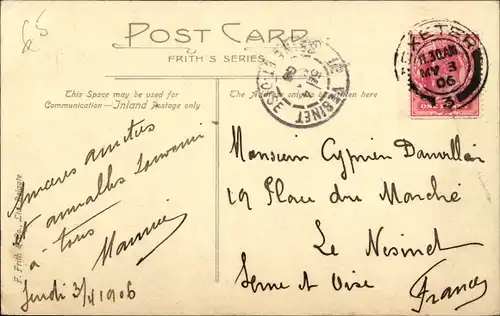 POST CARD
FRITH'S SERIES
This Space may be used for
Communication—Inland Postage only
The Address only to be Written here
F. Frith & Co., Ltd., Reigate
EXETER
11.30AM
MY 3
06
LE VESINET
SEINE ET OISE
Sincères amitiés
et aimables souvenirs
à tous
Maurice
Jeudi 3/4 1906
Monsieur Cyprien
19 Place du Marché
Le Vésinet
Seine et Oise
France